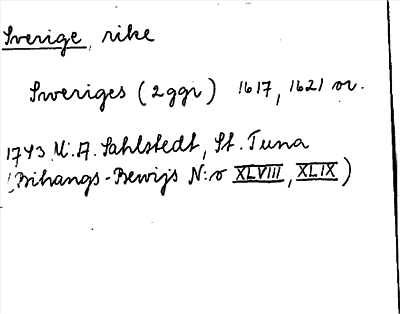 Sverige, rike
Sweriges (2 ggr) 1617, 1621 or.
1743 M. A. Sahlstedt, St. Tuna
(Bihangs-Bewijs N:o XLVIII, XLIX)